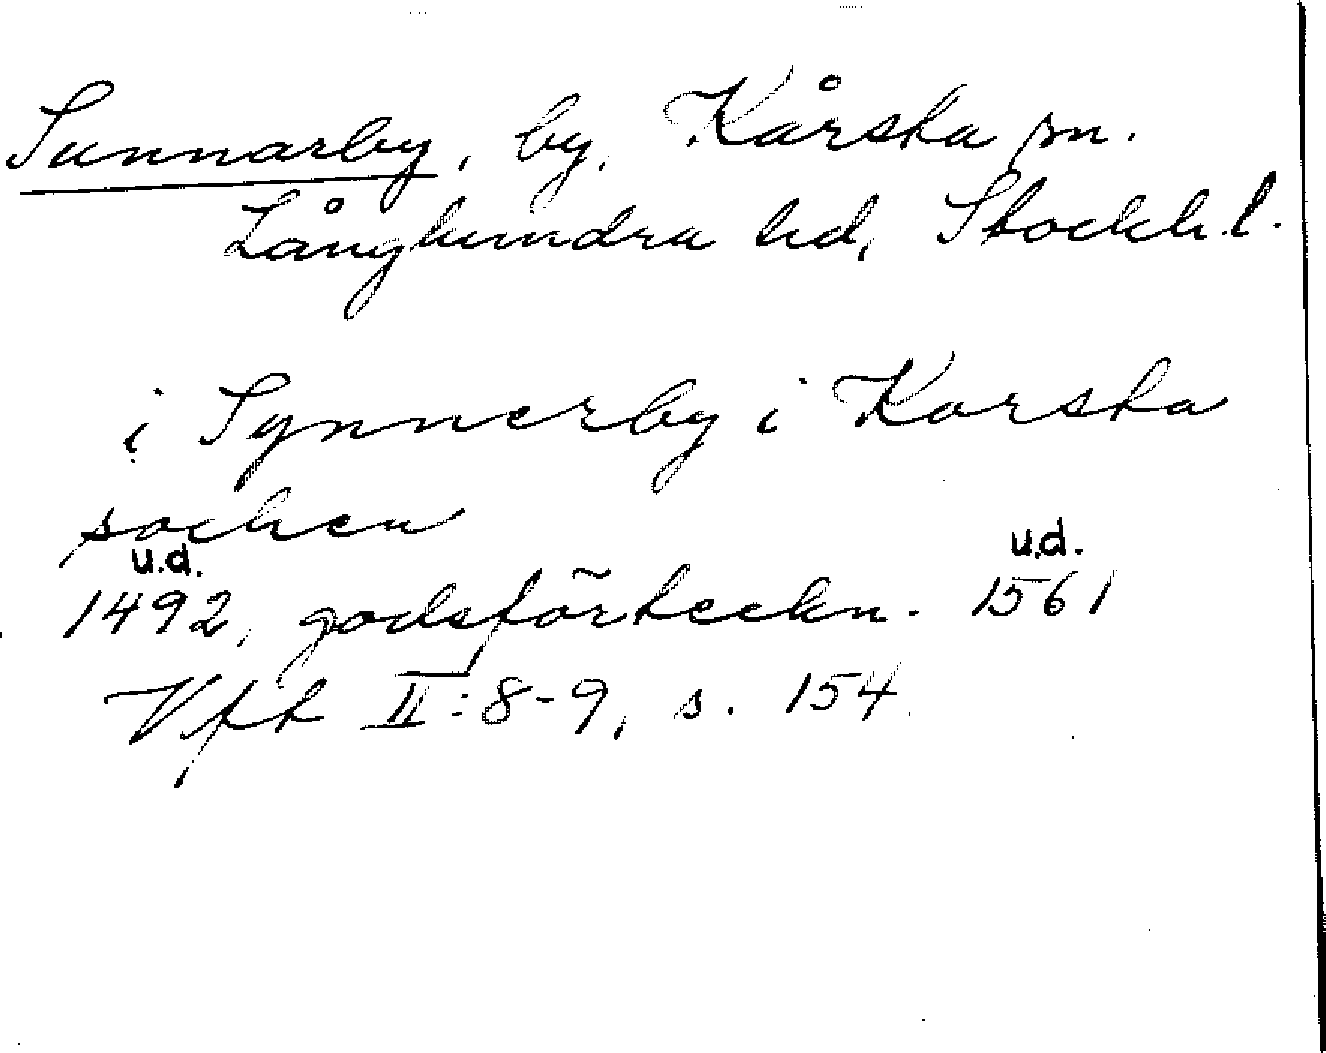 Sunnarby, by, Kårsta sn.
Långhundra hd, Stockh. l.
i Synnerby i Karsta
socken
u.d. u.d.
1492, godsförteckn. 1561
Vft II:8-9, s. 154.